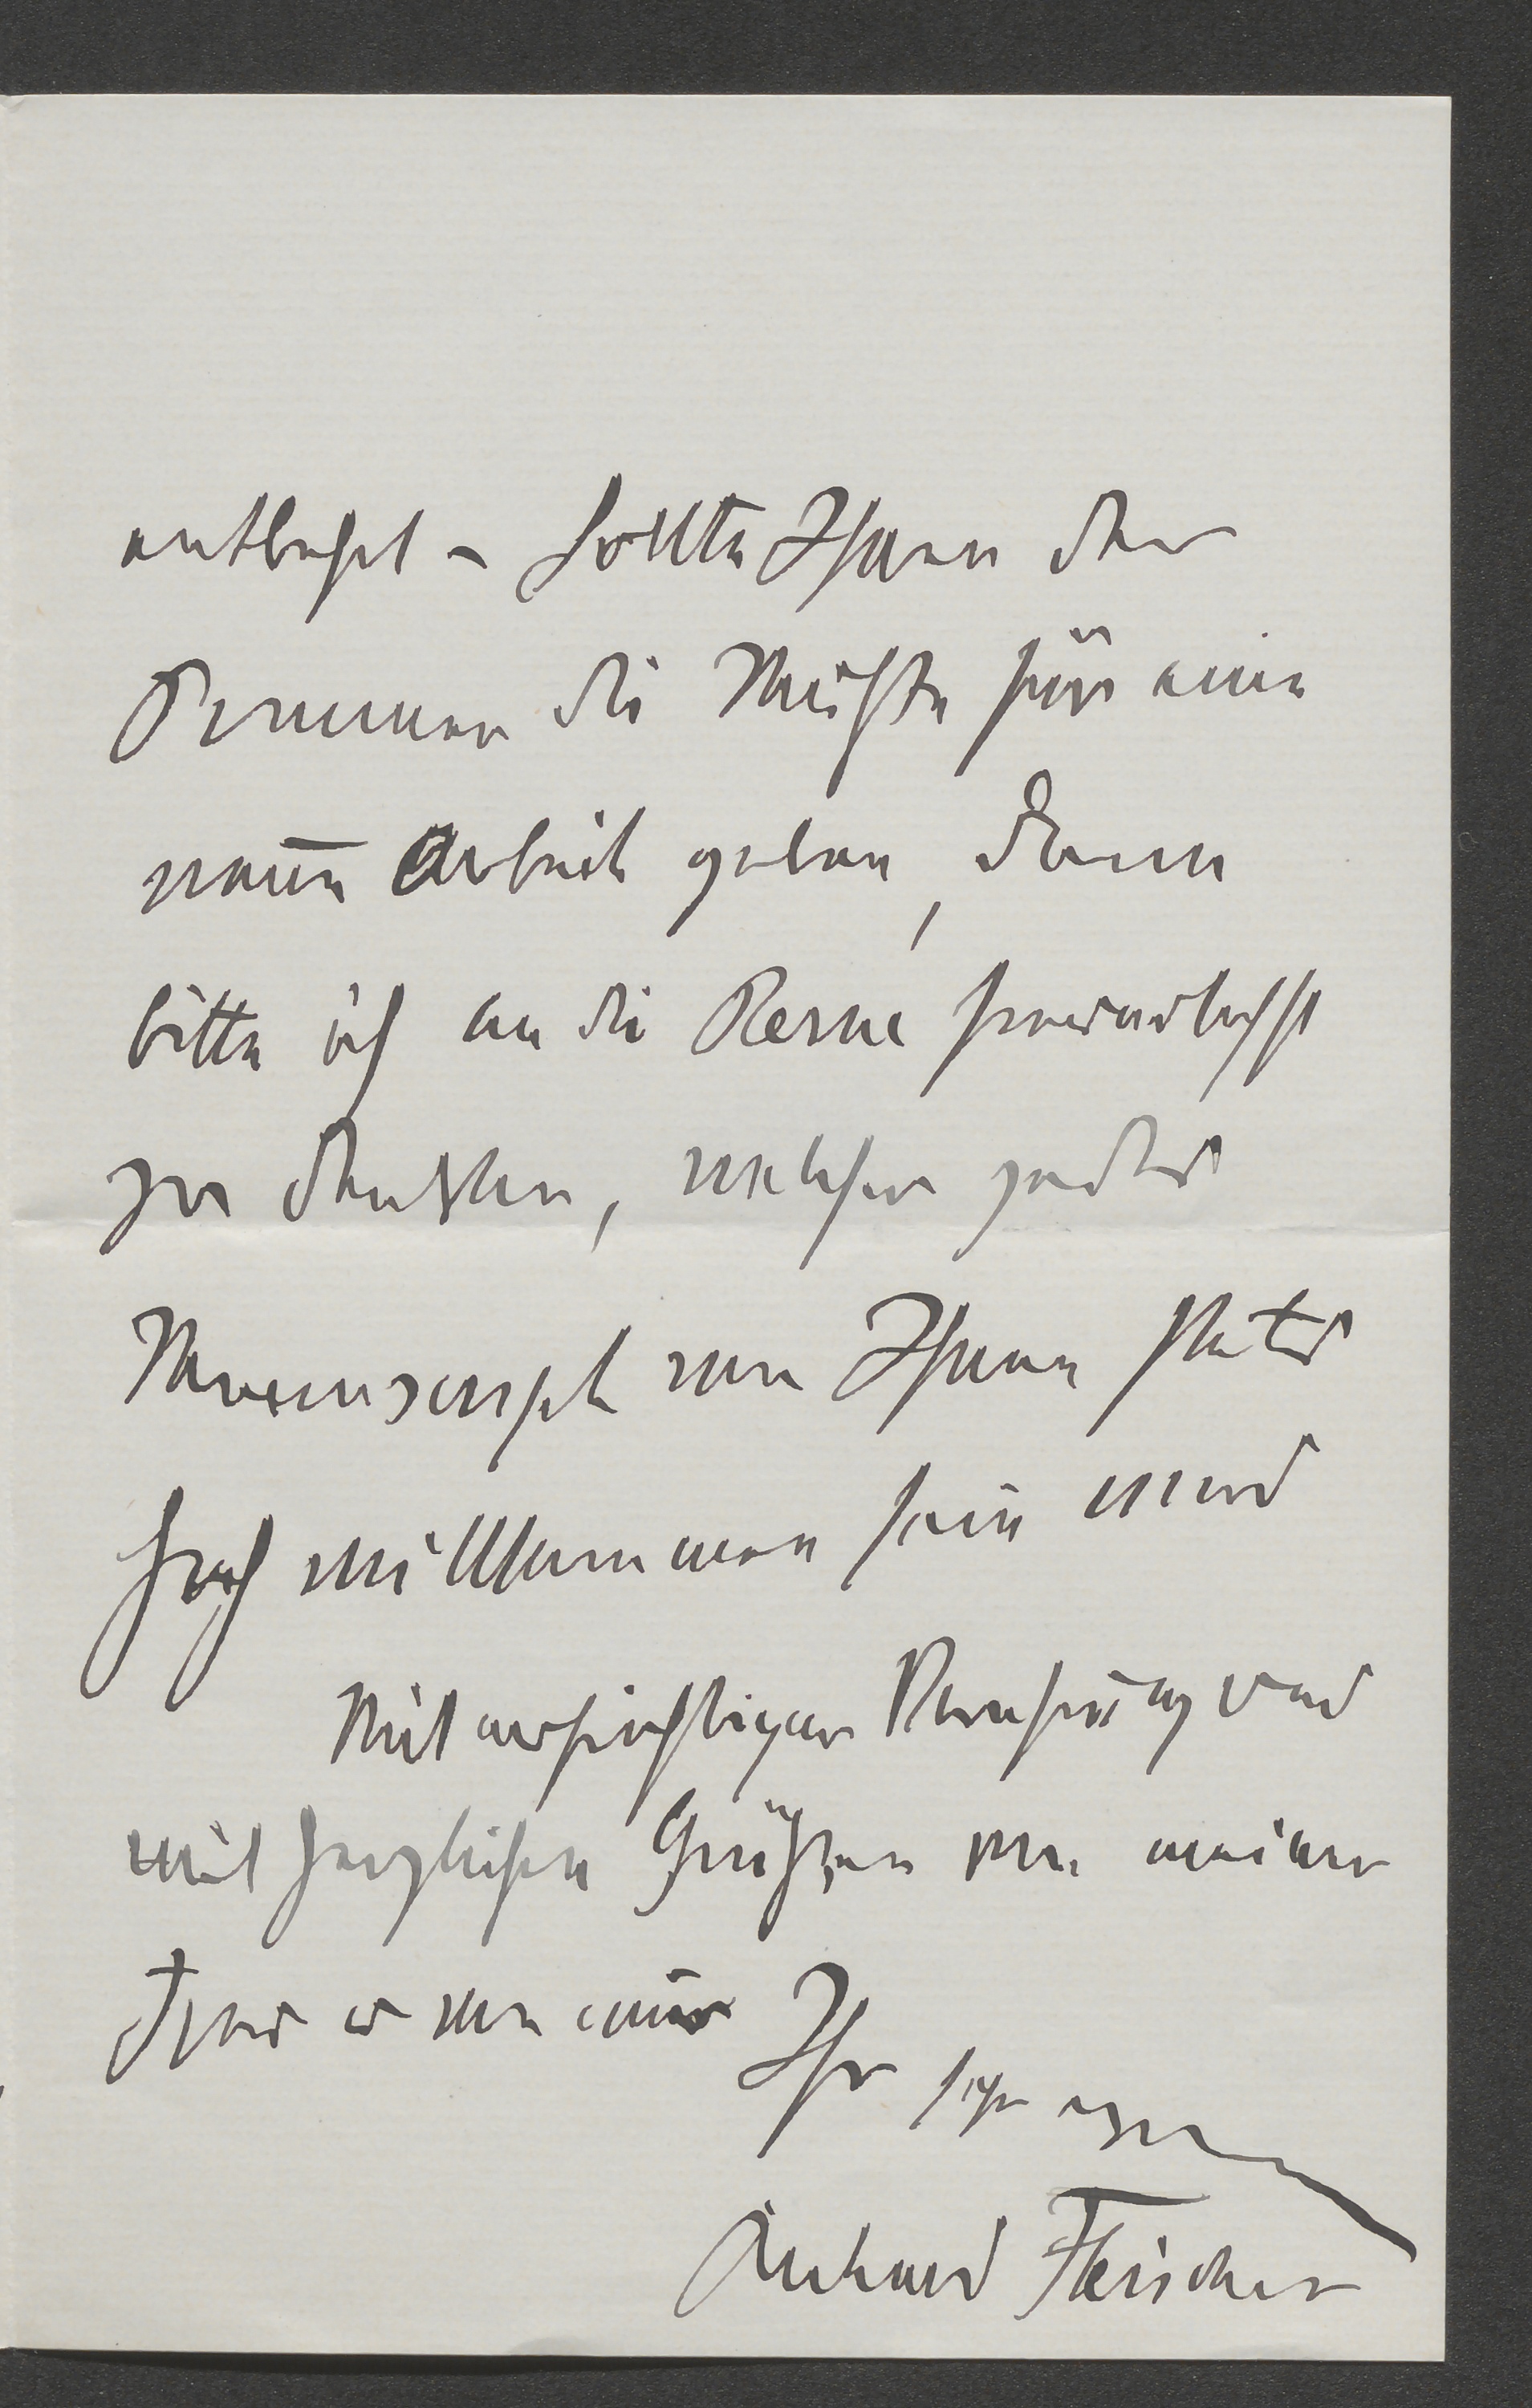 entbehrt – Sollte Ihnen der
Sommer die Muße für eine
neue Arbeit geben, dann
bitte ich an die Revue freundlichst
zu denken, welcher jedes
Manuscript von Ihnen stets
hoch willkommen sein wird
Mit aufrichtiger Verehrung und
mit herzlichen Grüßen von meiner
Frau u von mir Ihr sehr
Richard Fleischer